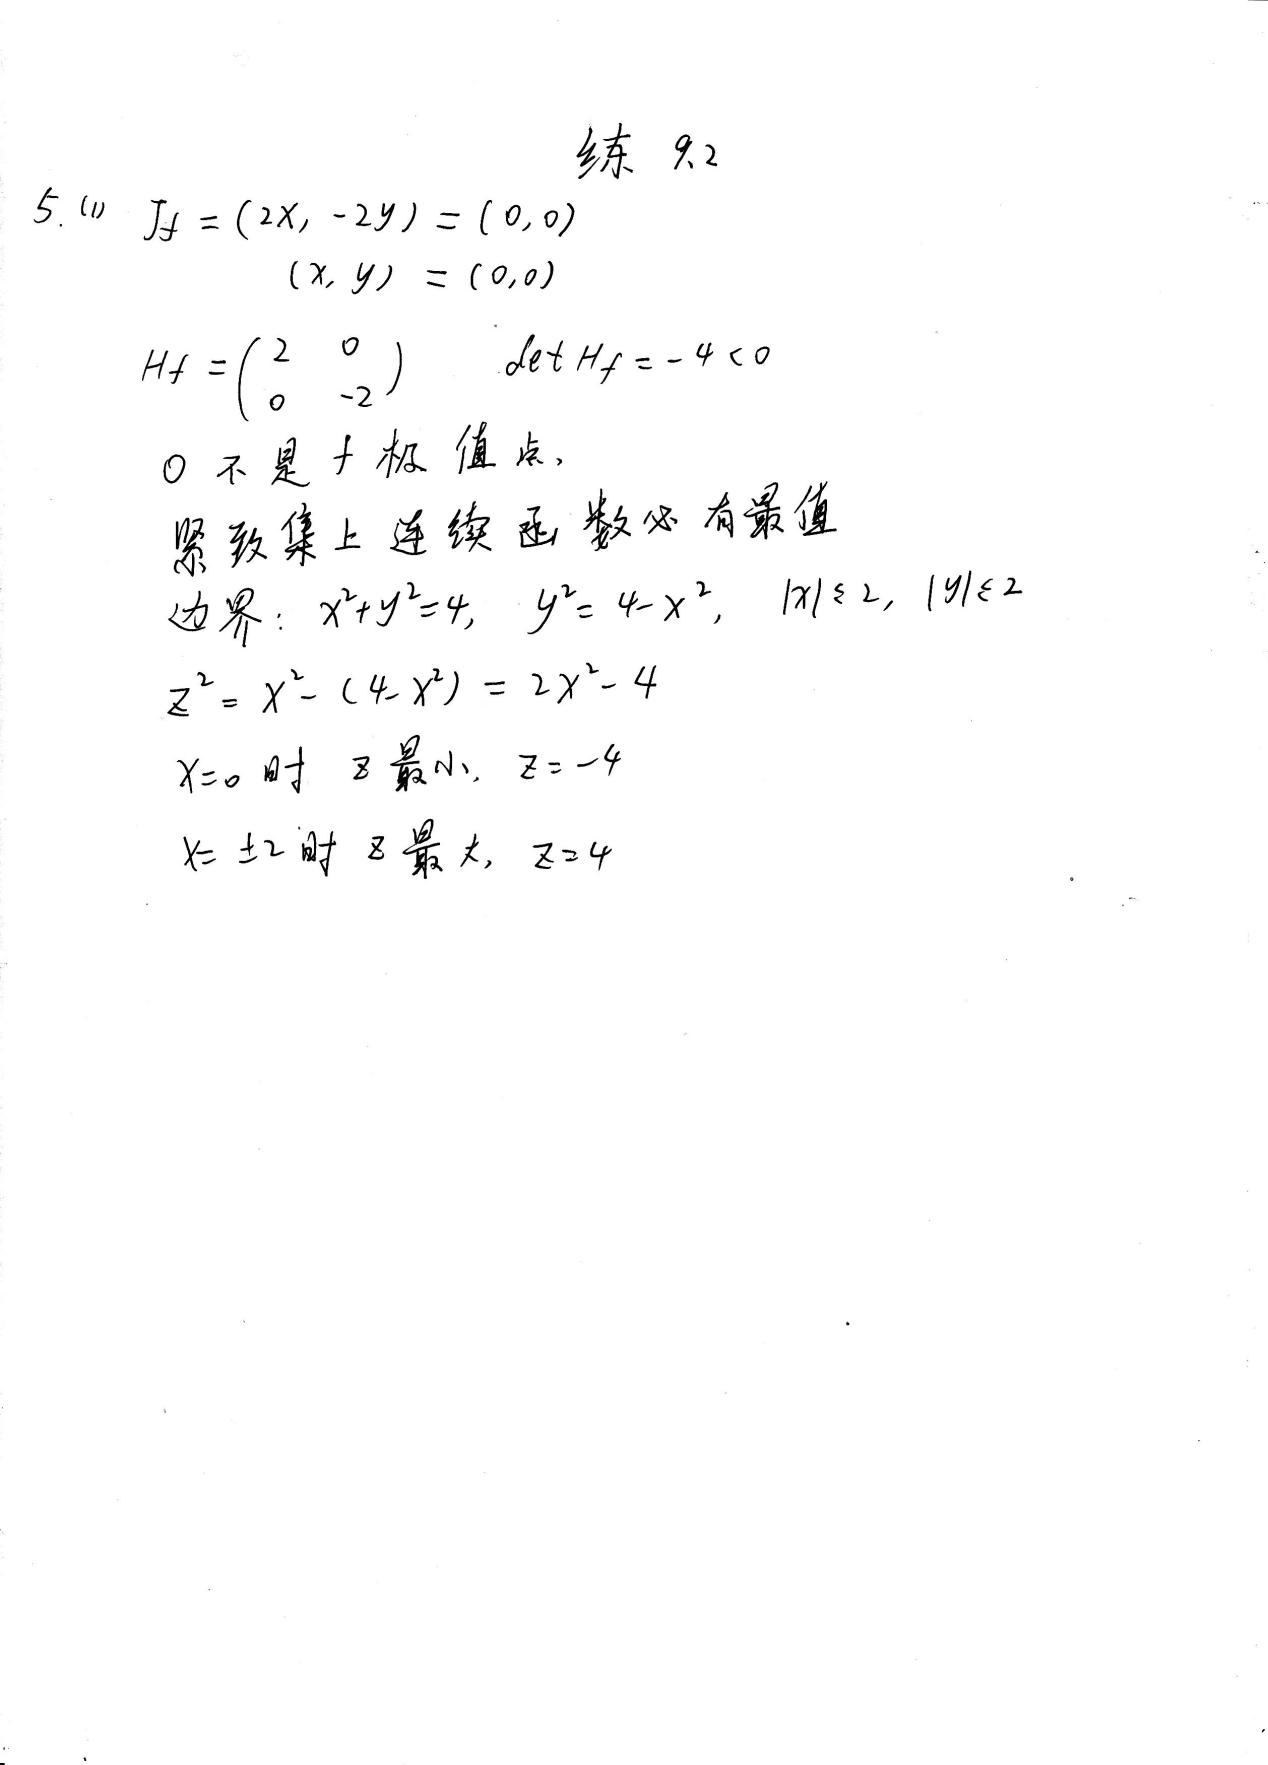 练 9.2
5. (1) Jf = (2x, -2y) = (0,0)
(x, y) = (0,0)
Hf = ( 2 0
0 -2 ) det Hf = -4 < 0
0 不是 f 极值点.
紧致集上连续函数必有最值
边界: x²+y²=4, y²=4-x², |x|≤2, |y|≤2
z² = x²-(4-x²) = 2x²-4
x=0时 z最小, z=-4
x=±2时 z最大, z=4